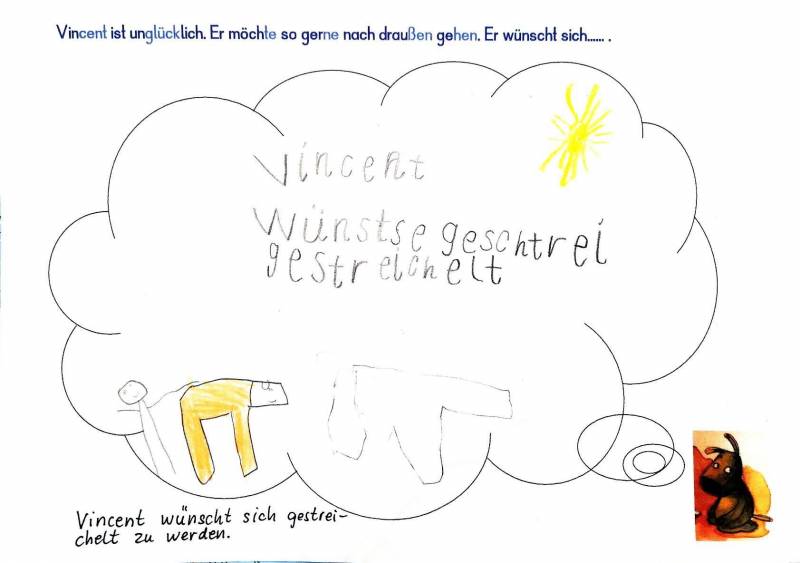 Vincent ist unglücklich. Er möchte so gerne nach draußen gehen. Er wünscht sich...... .
Vincent
Wünstse geschtrei
gestreichelt
Vincent wünscht sich gestrei-
chelt zu werden.